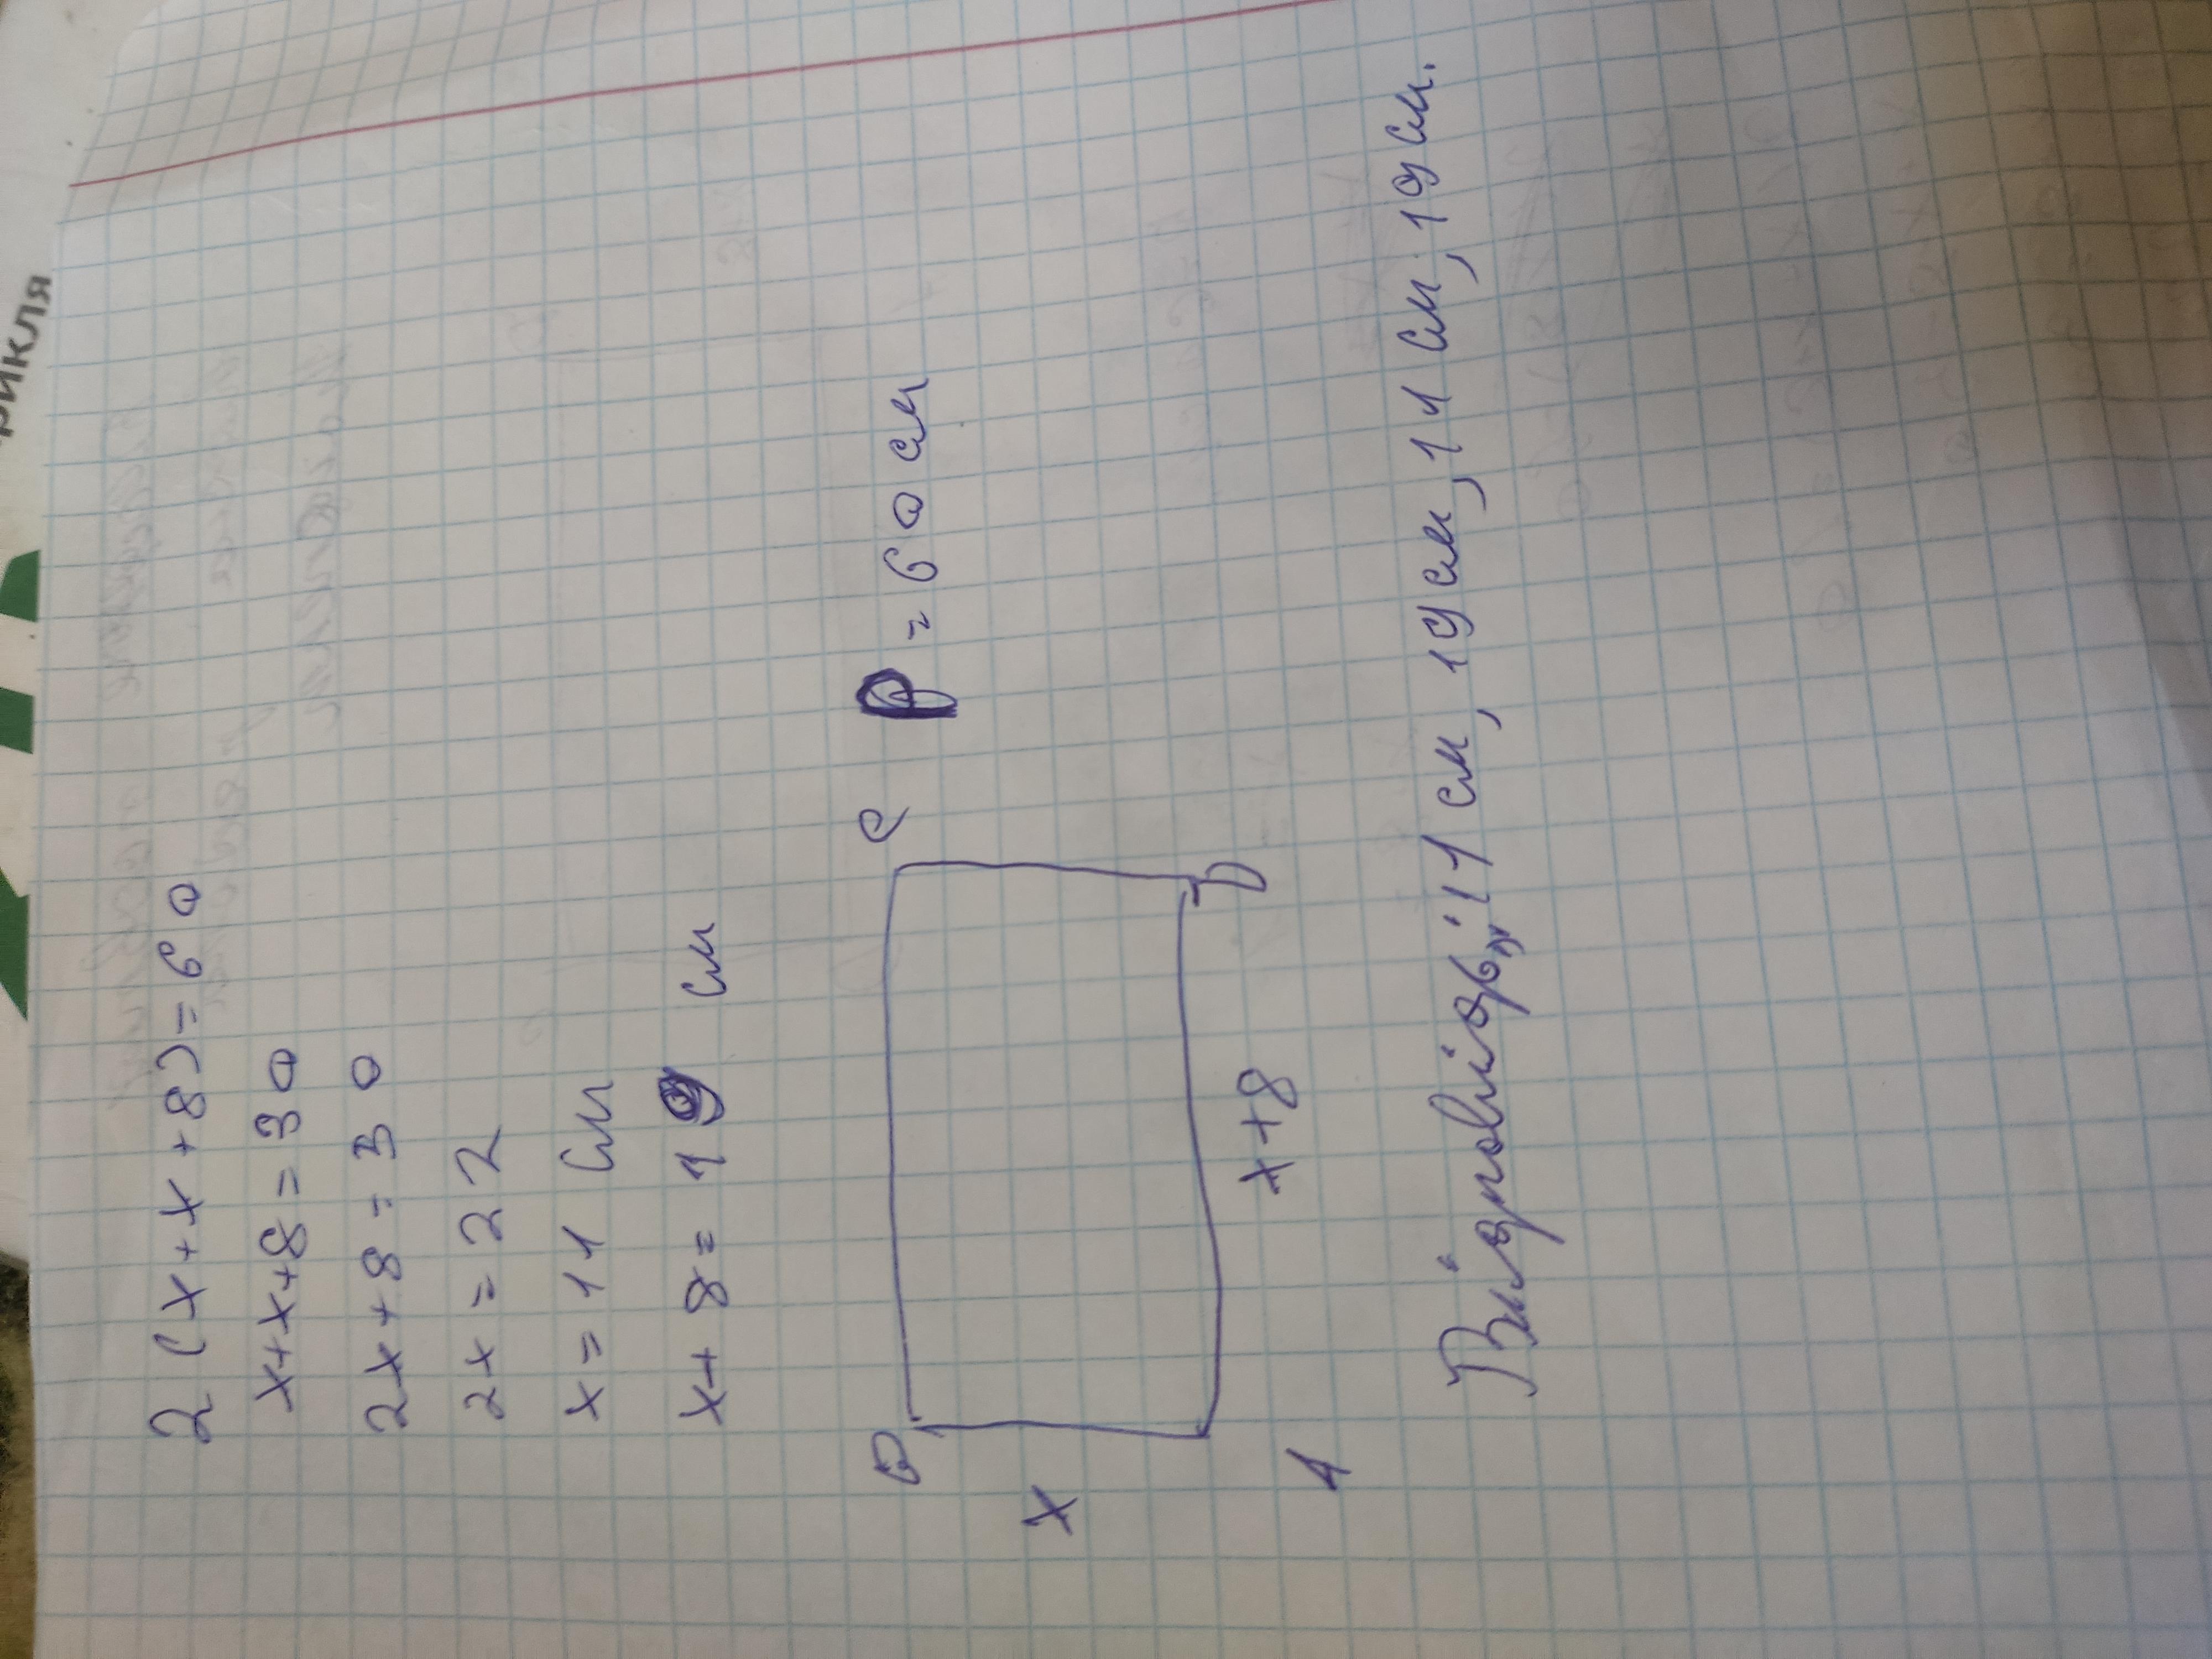 2(x+x+8)=60
x+x+8=30
2x+8=30
2x=22
x=11 см
x+8=19 см
B C P=60 см
x
A x+8 D
Відповідь: 11 см, 19 см, 11 см, 19 см.
рикля